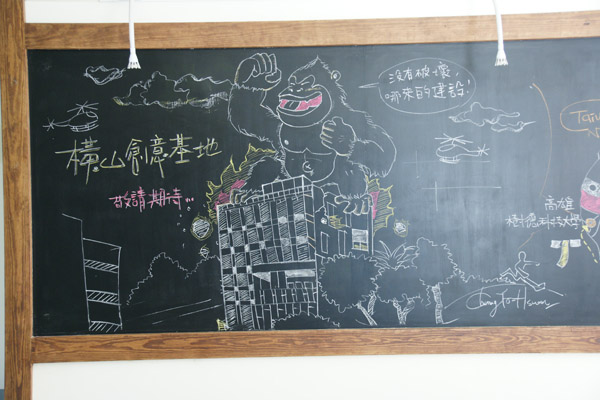 沒有破壞，
哪來的建設！
橫山創意基地
敬請期待...
Taiw
高雄
樹德科技大學